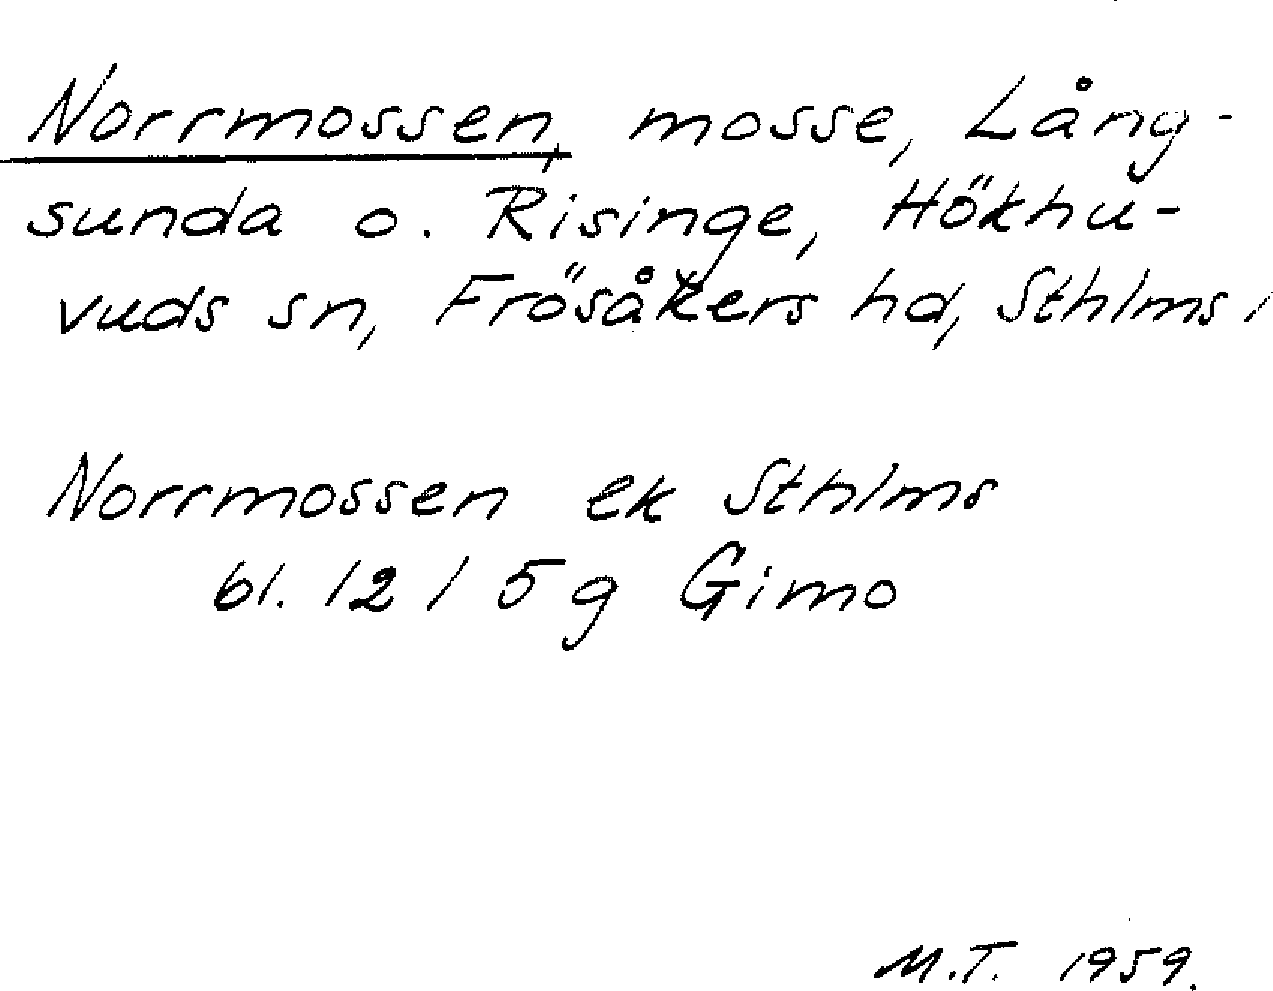 Norrmossen, mosse, Lång-
sunda o. Risinge, Hökhu-
vuds sn, Frösåkers hd, Sthlms l
Norrmossen ek Sthlms
bl. 12 I 5 g Gimo
M.T. 1959.